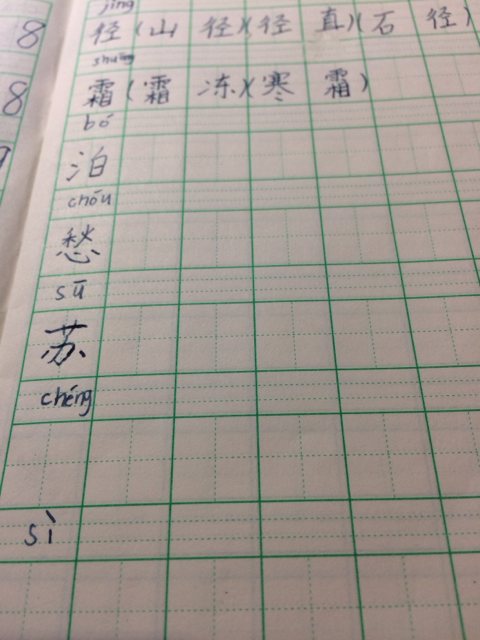 8
jìng
径(山径)(径直)(石径)
shuāng
8
霜(霜冻)(寒霜)
bó
9
泊
chóu
愁
sū
苏
chéng
sì